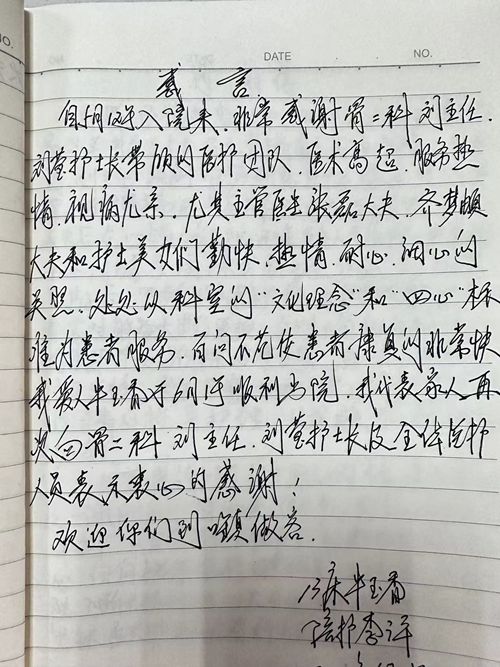 NO.
DATE
NO.
感言
自5月12号入院来,非常感谢骨二科刘主任.
刘莹护士长带领的医护团队,医术高超,服务热
情,视病尤亲,尤其主管医生张磊大夫,齐梦
大夫和护士美女们勤快,热情,耐心,细心的
关照,处处以科室的"文化理念"和"四心"标
准为患者服务,百问不厌使患者康复的非常快
我爱人牛玉香于6月 顺利出院,我代表家人再
次向骨二科刘主任,刘莹护士长及全体医护
人员表示衷心的感谢!
欢迎你们到 镇做客.
13床牛玉香
陪护李